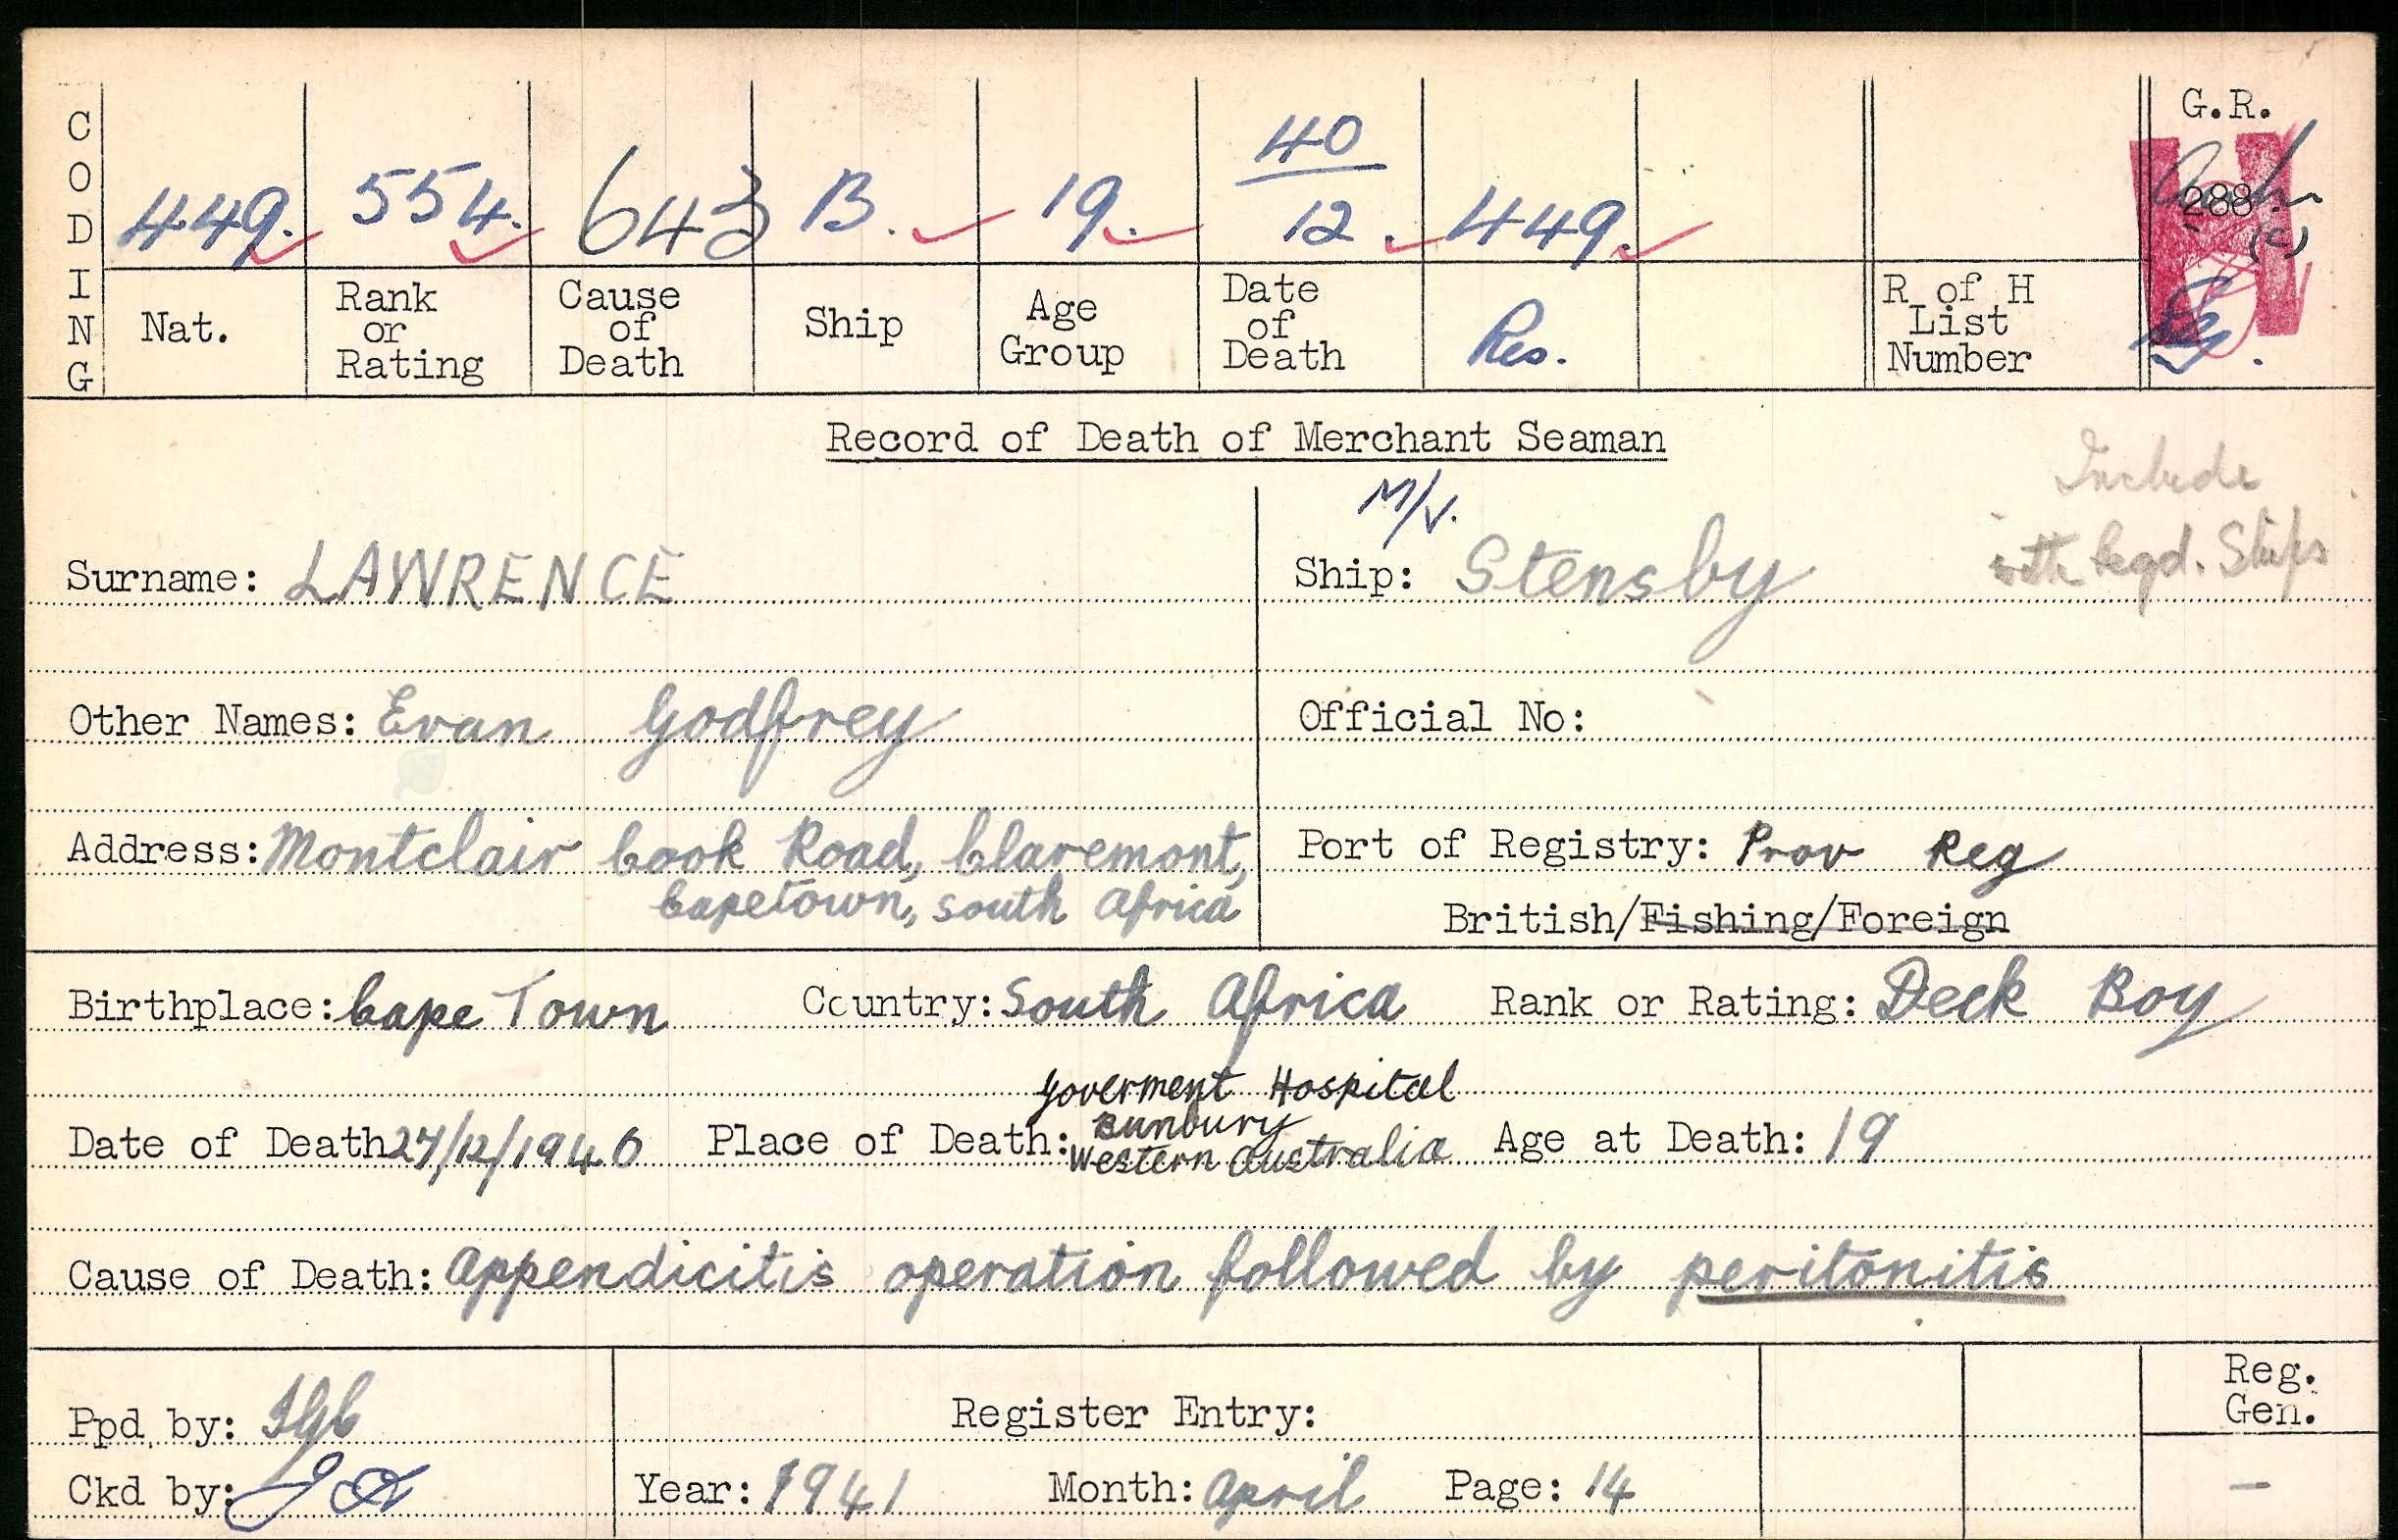 CODING
G.R.
40
449. 554. 643 B. 19. 12. 449.
288
(c)
Nat. Rank or Rating Cause of Death Ship Age Group Date of Death Res. R of H List Number
Record of Death of Merchant Seaman
Include
with Regd. Ships
M/V.
Surname: LAWRENCE
Ship: Stensby
Other Names: Evan Godfrey
Official No:
Address: Montclair Cook Road, Claremont,
Capetown, South Africa
Port of Registry: Prov Reg
British/Fishing/Foreign
Birthplace: Cape Town Country: South Africa Rank or Rating: Deck Boy
Goverment Hospital
Bunbury
Date of Death 27/12/1940 Place of Death: Western Australia Age at Death: 19
Cause of Death: Appendicitis operation followed by peritonitis
Ppd by:
Ckd by:
Register Entry:
Year: 1941 Month: April Page: 14
Reg.
Gen.
–